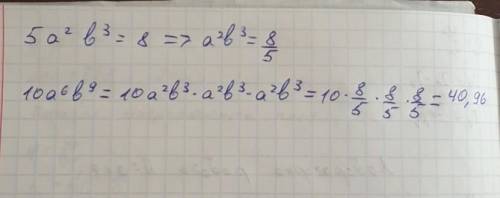 5a² b³ = 8 => a²b³ = 8/5
10a⁶b⁹ = 10a²b³·a²b³·a²b³ = 10·8/5·8/5·8/5 = 40,96